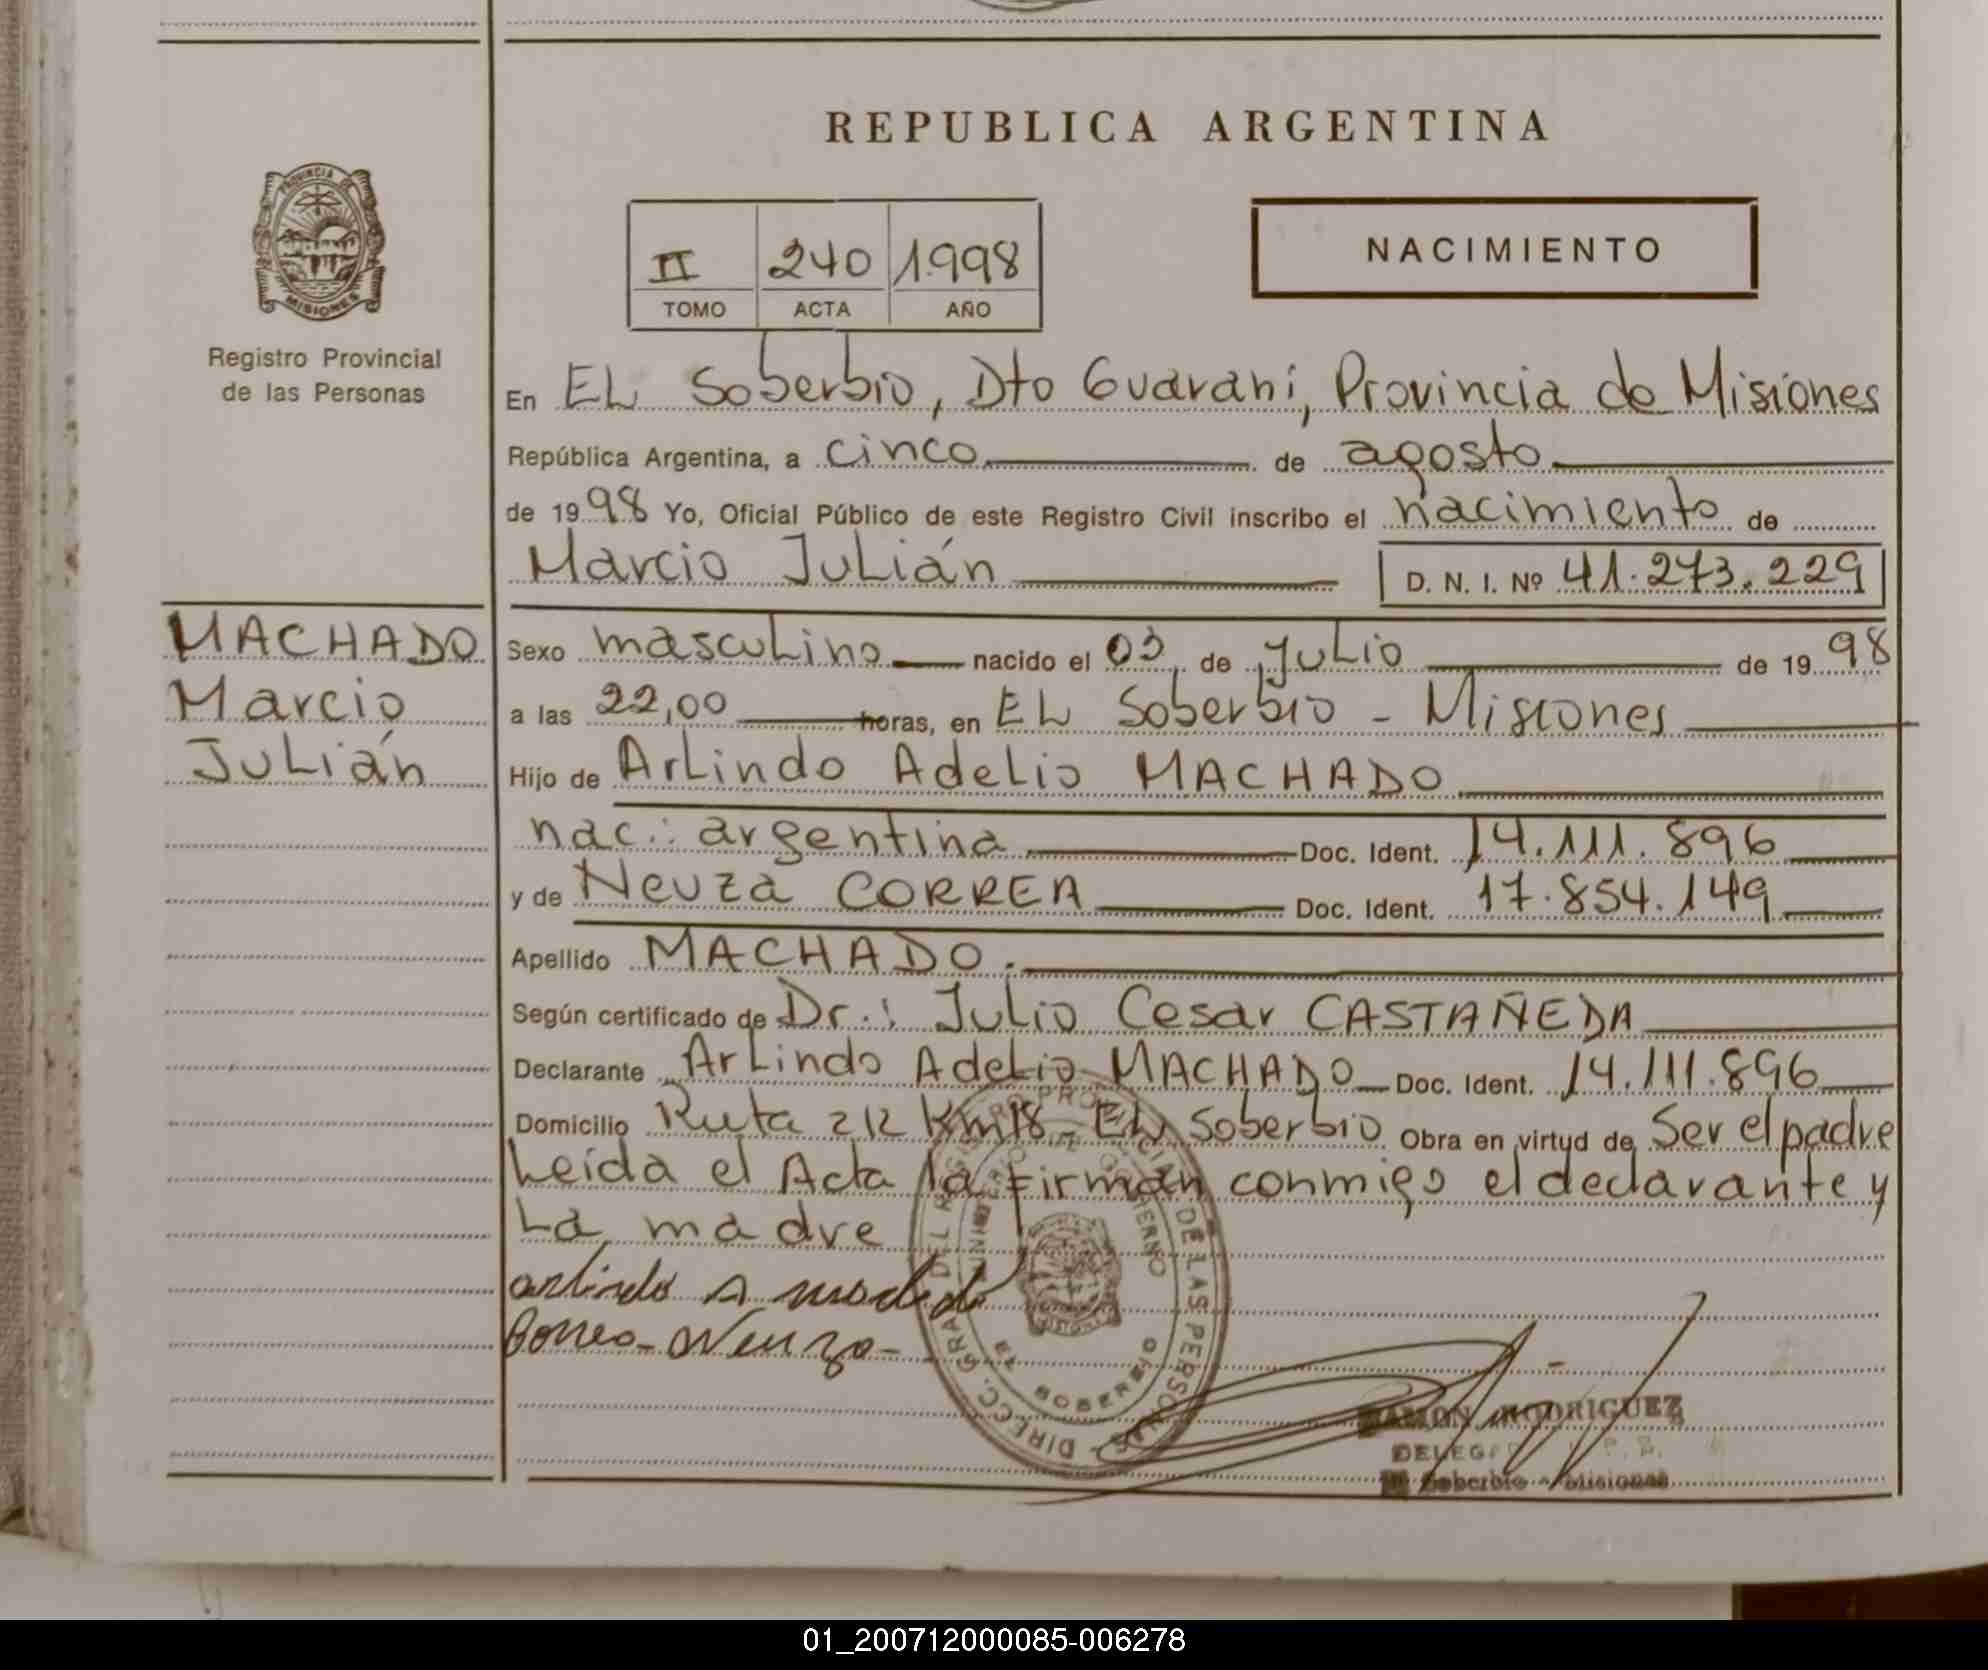 REPUBLICA ARGENTINA
PROVINCIA DE MISIONES
Registro Provincial
de las Personas
II 240 1.998
TOMO ACTA AÑO
NACIMIENTO
En EL Soberbio, Dto Guaraní, Provincia de Misiones
República Argentina, a cinco de agosto
de 1998 Yo, Oficial Público de este Registro Civil inscribo el nacimiento de
Marcio Julián D. N. I. Nº 41.273.229
MACHADO
Marcio
Julián
Sexo masculino nacido el 03 de Julio de 1998
a las 22,00 horas, en EL Soberbio - Misiones
Hijo de Arlindo Adelio MACHADO
nac.: argentina Doc. Ident. 14.111.896
y de Neuza CORREA Doc. Ident. 17.854.149
Apellido MACHADO.
Según certificado de Dr.: Julio Cesar CASTAÑEDA
Declarante Arlindo Adelio MACHADO Doc. Ident. 14.111.896
Domicilio Ruta 212 Km18 - EL Soberbio Obra en virtud de Ser el padre
Leída el Acta la Firman conmigo el declarante y
La madre
arlindo A machado
Correa - Neuza -
DIRECC. GRAL DEL REGISTRO PROVINCIAL DE LAS PERSONAS
MINISTERIO DE GOBIERNO
EL SOBERBIO
MISIONES
RAMON RODRIGUEZ
El Soberbio - Misiones
01_200712000085-006278